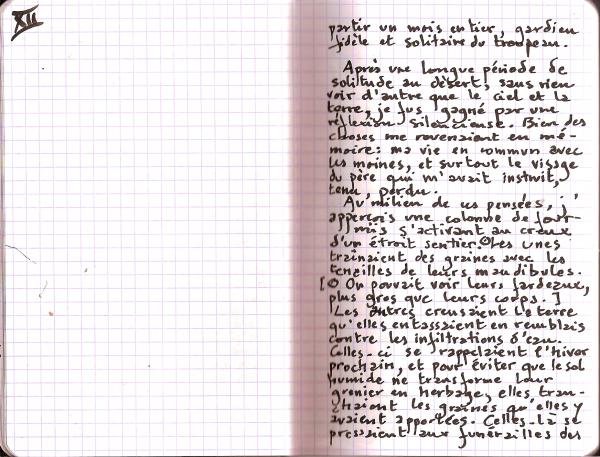 XII
partir un mois entier, gardien
fidèle et solitaire du troupeau.
Après une longue période de
solitude au désert, sans rien
voir d'autre que le ciel et la
terre, je fus gagné par une
réflexion silencieuse. Bien des
choses me revenaient en mé-
moire: ma vie en commun avec
les moines, et surtout le visage
du père qui m'avait instruit,
tenu, perdu.
Au milieu de ces pensées, j'
aperçois une colonne de four-
mis s'activant au creux
d'un étroit sentier. Les unes
traînaient des graines avec les
tenailles de leurs mandibules.
[ On pouvait voir leurs fardeaux,
plus gros que leurs corps. ]
Les autres creusaient la terre
qu'elles entassaient en remblais
contre les infiltrations d'eau.
Celles-ci se rappelaient l'hiver
prochain, et pour éviter que le sol
humide ne transforme leur
grenier en herbage, elles tran-
chaient les graines qu'elles y
avaient apportées. Celles-là se
pressaient aux funérailles des